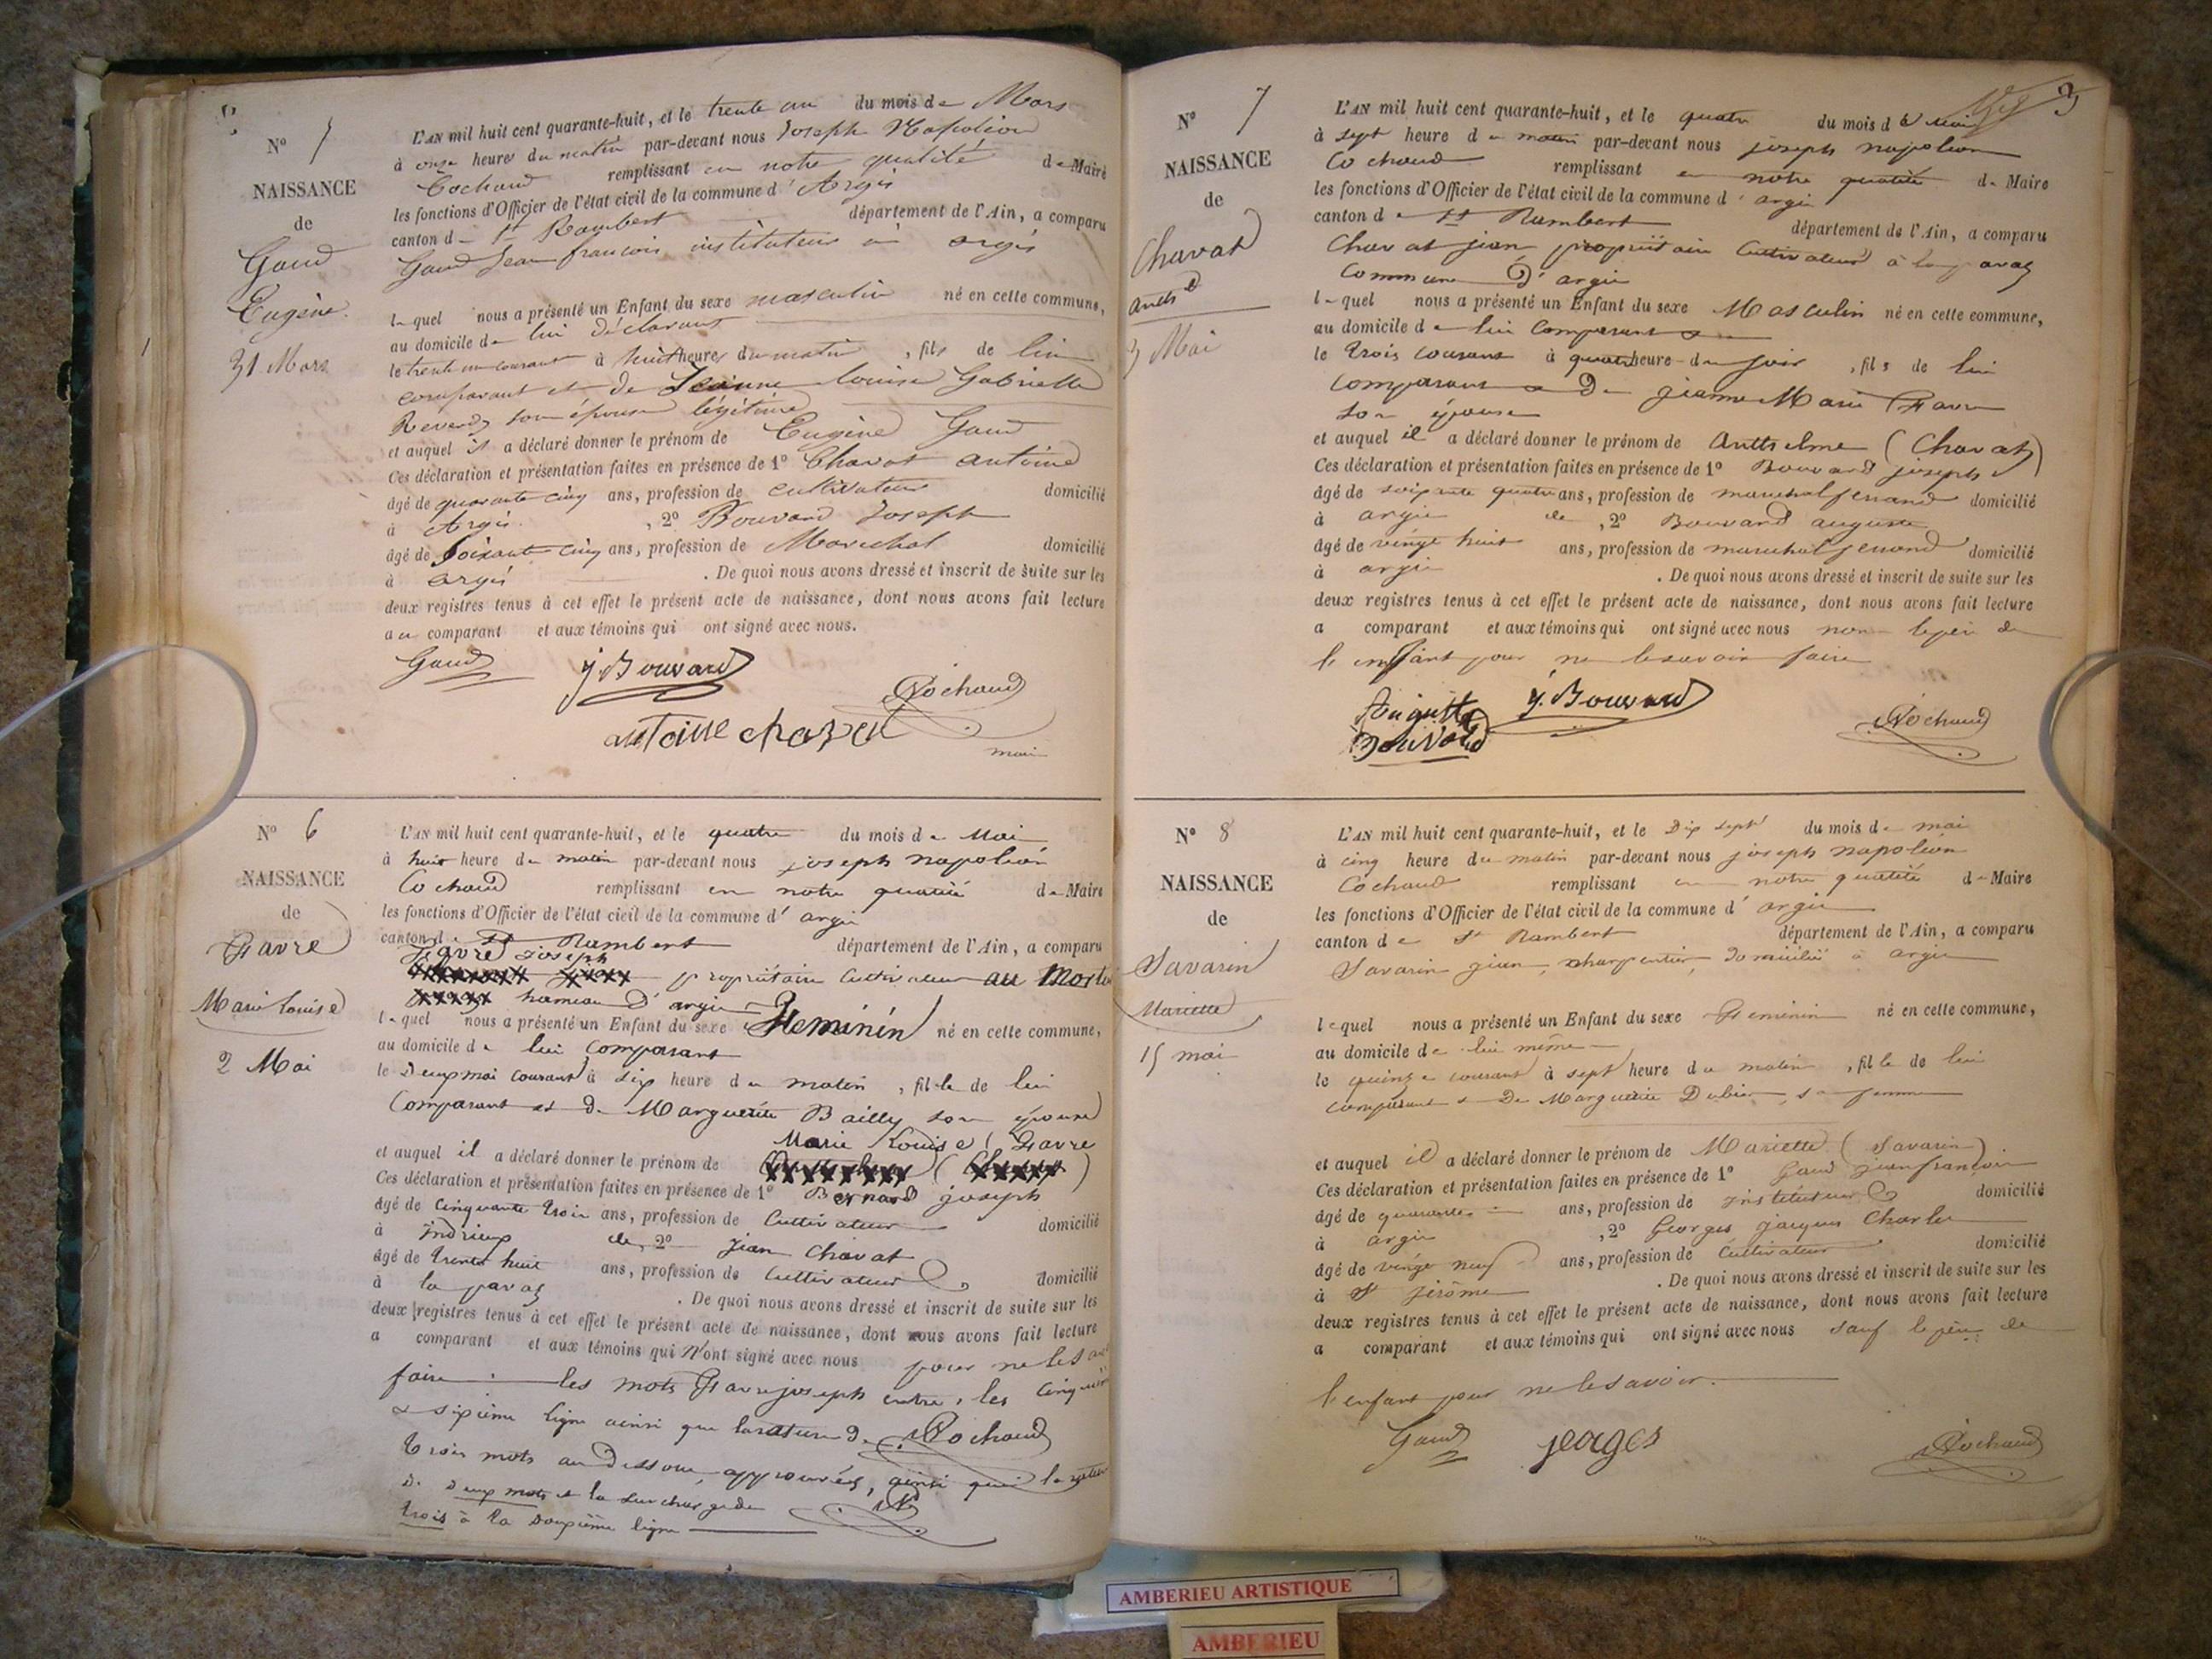 N° 5
NAISSANCE
de
Gaud
Eugène
31 Mars
L'AN mil huit cent quarante-huit, et le trente un du mois de Mars
à onze heures du matin par-devant nous Joseph Napoléon
Cochaud remplissant en notre qualité de Maire
les fonctions d'Officier de l'état civil de la commune d' Argis
canton de St Rambert département de l'Ain, a comparu
Gaud Jean françois instituteur à argis
lequel nous a présenté un Enfant du sexe masculin né en cette commune,
au domicile de lui déclarant
le trente un courant à huit heures du matin, fils de lui
comparant et de Jeanne Louise Gabrielle
Reverdy son épouse légitime
et auquel il a déclaré donner le prénom de Eugène Gaud
Ces déclaration et présentation faites en présence de 1° Chavat antoine
âgé de quarante cinq ans, profession de cultivateur domicilié
à Argis, 2° Bouvard Joseph
âgé de Soixante cinq ans, profession de Maréchal domicilié
à argis. De quoi nous avons dressé et inscrit de suite sur les
deux registres tenus à cet effet le présent acte de naissance, dont nous avons fait lecture
au comparant et aux témoins qui ont signé avec nous.
Gaud J. Bouvard Cochaud
antoine chavat
maire
N° 6
NAISSANCE
de
Favre
Marie Louise
2 Mai
L'AN mil huit cent quarante-huit, et le quatre du mois de Mai
à huit heure du matin par-devant nous joseph napoléon
Cochaud remplissant en notre qualité de Maire
les fonctions d'Officier de l'état civil de la commune d' argis
canton de St Rambert département de l'Ain, a comparu
Favre Joseph
propriétaire Cultivateur au
hameau D'argis
lequel nous a présenté un Enfant du sexe Féminin né en cette commune,
au domicile de lui Comparant
le Deux mai courant à six heure du matin, fille de lui
Comparant et de Marguerite Bailly son épouse
Marie Louise (Favre
et auquel il a déclaré donner le prénom de
Ces déclaration et présentation faites en présence de 1° Bernard joseph
âgé de Cinquante trois ans, profession de Cultivateur domicilié
à indrieux, 2° Jean Chavat
âgé de trente huit ans, profession de Cultivateur domicilié
à la pavaz. De quoi nous avons dressé et inscrit de suite sur les
deux registres tenus à cet effet le présent acte de naissance, dont nous avons fait lecture
a comparant et aux témoins qui N'ont signé avec nous pour ne le
faire les mots Favre joseph entre les
& sixième ligne ainsi que la rature de Cochaud
trois mots au dessous approuvés, ainsi que la
De deux mots & la surcharge de
trois à la douzième ligne
3
N° 7
NAISSANCE
de
Chavat
Anthe
3 Mai
L'AN mil huit cent quarante-huit, et le quatre du mois de Mai
à sept heure du matin par-devant nous joseph napoléon
Cochaud remplissant en notre qualité de Maire
les fonctions d'Officier de l'état civil de la commune d' argis
canton de St Rambert département de l'Ain, a comparu
Chavat jean propriétaire Cultivateur à la pavaz
Commune D'argis
lequel nous a présenté un Enfant du sexe Masculin né en cette commune,
au domicile de lui Comparant
le trois courant à quatre heure du soir, fils de lui
Comparant & De jeanne Marie Favre
son épouse
et auquel il a déclaré donner le prénom de Anthelme (Chavat)
Ces déclaration et présentation faites en présence de 1° Bouvard joseph
âgé de soixante quatre ans, profession de marechal ferrand domicilié
à argis, 2° Bouvard auguste
âgé de vingt huit ans, profession de marechal ferrand domicilié
à argis. De quoi nous avons dressé et inscrit de suite sur les
deux registres tenus à cet effet le présent acte de naissance, dont nous avons fait lecture
a comparant et aux témoins qui ont signé avec nous non le père de
l'enfant pour ne le savoir faire
Auguste J. Bouvard
Bouvard Cochaud
N° 8
NAISSANCE
de
Savarin
Mariette
15 mai
L'AN mil huit cent quarante-huit, et le Dix sept du mois de mai
à cinq heure du matin par-devant nous joseph napoléon
Cochaud remplissant en notre qualité de Maire
les fonctions d'Officier de l'état civil de la commune d' argis
canton de St Rambert département de l'Ain, a comparu
Savarin jean, charpentier, domicilié à argis
lequel nous a présenté un Enfant du sexe Féminin né en cette commune,
au domicile de lui même
le quinze courant à sept heure du matin, fille de lui
comparant & De Marguerite Dubier, sa femme
et auquel il a déclaré donner le prénom de Mariette (Savarin)
Ces déclaration et présentation faites en présence de 1° Gaud jean françois
âgé de quarante ans, profession de instituteur domicilié
à argis, 2° Georges jacques Charles
âgé de vingt neuf ans, profession de Cultivateur domicilié
à St jérôme. De quoi nous avons dressé et inscrit de suite sur les
deux registres tenus à cet effet le présent acte de naissance, dont nous avons fait lecture
a comparant et aux témoins qui ont signé avec nous sauf le père de
l'enfant pour ne le savoir.
Gaud jeorges Cochaud
AMBERIEU ARTISTIQUE
AMBERIEU